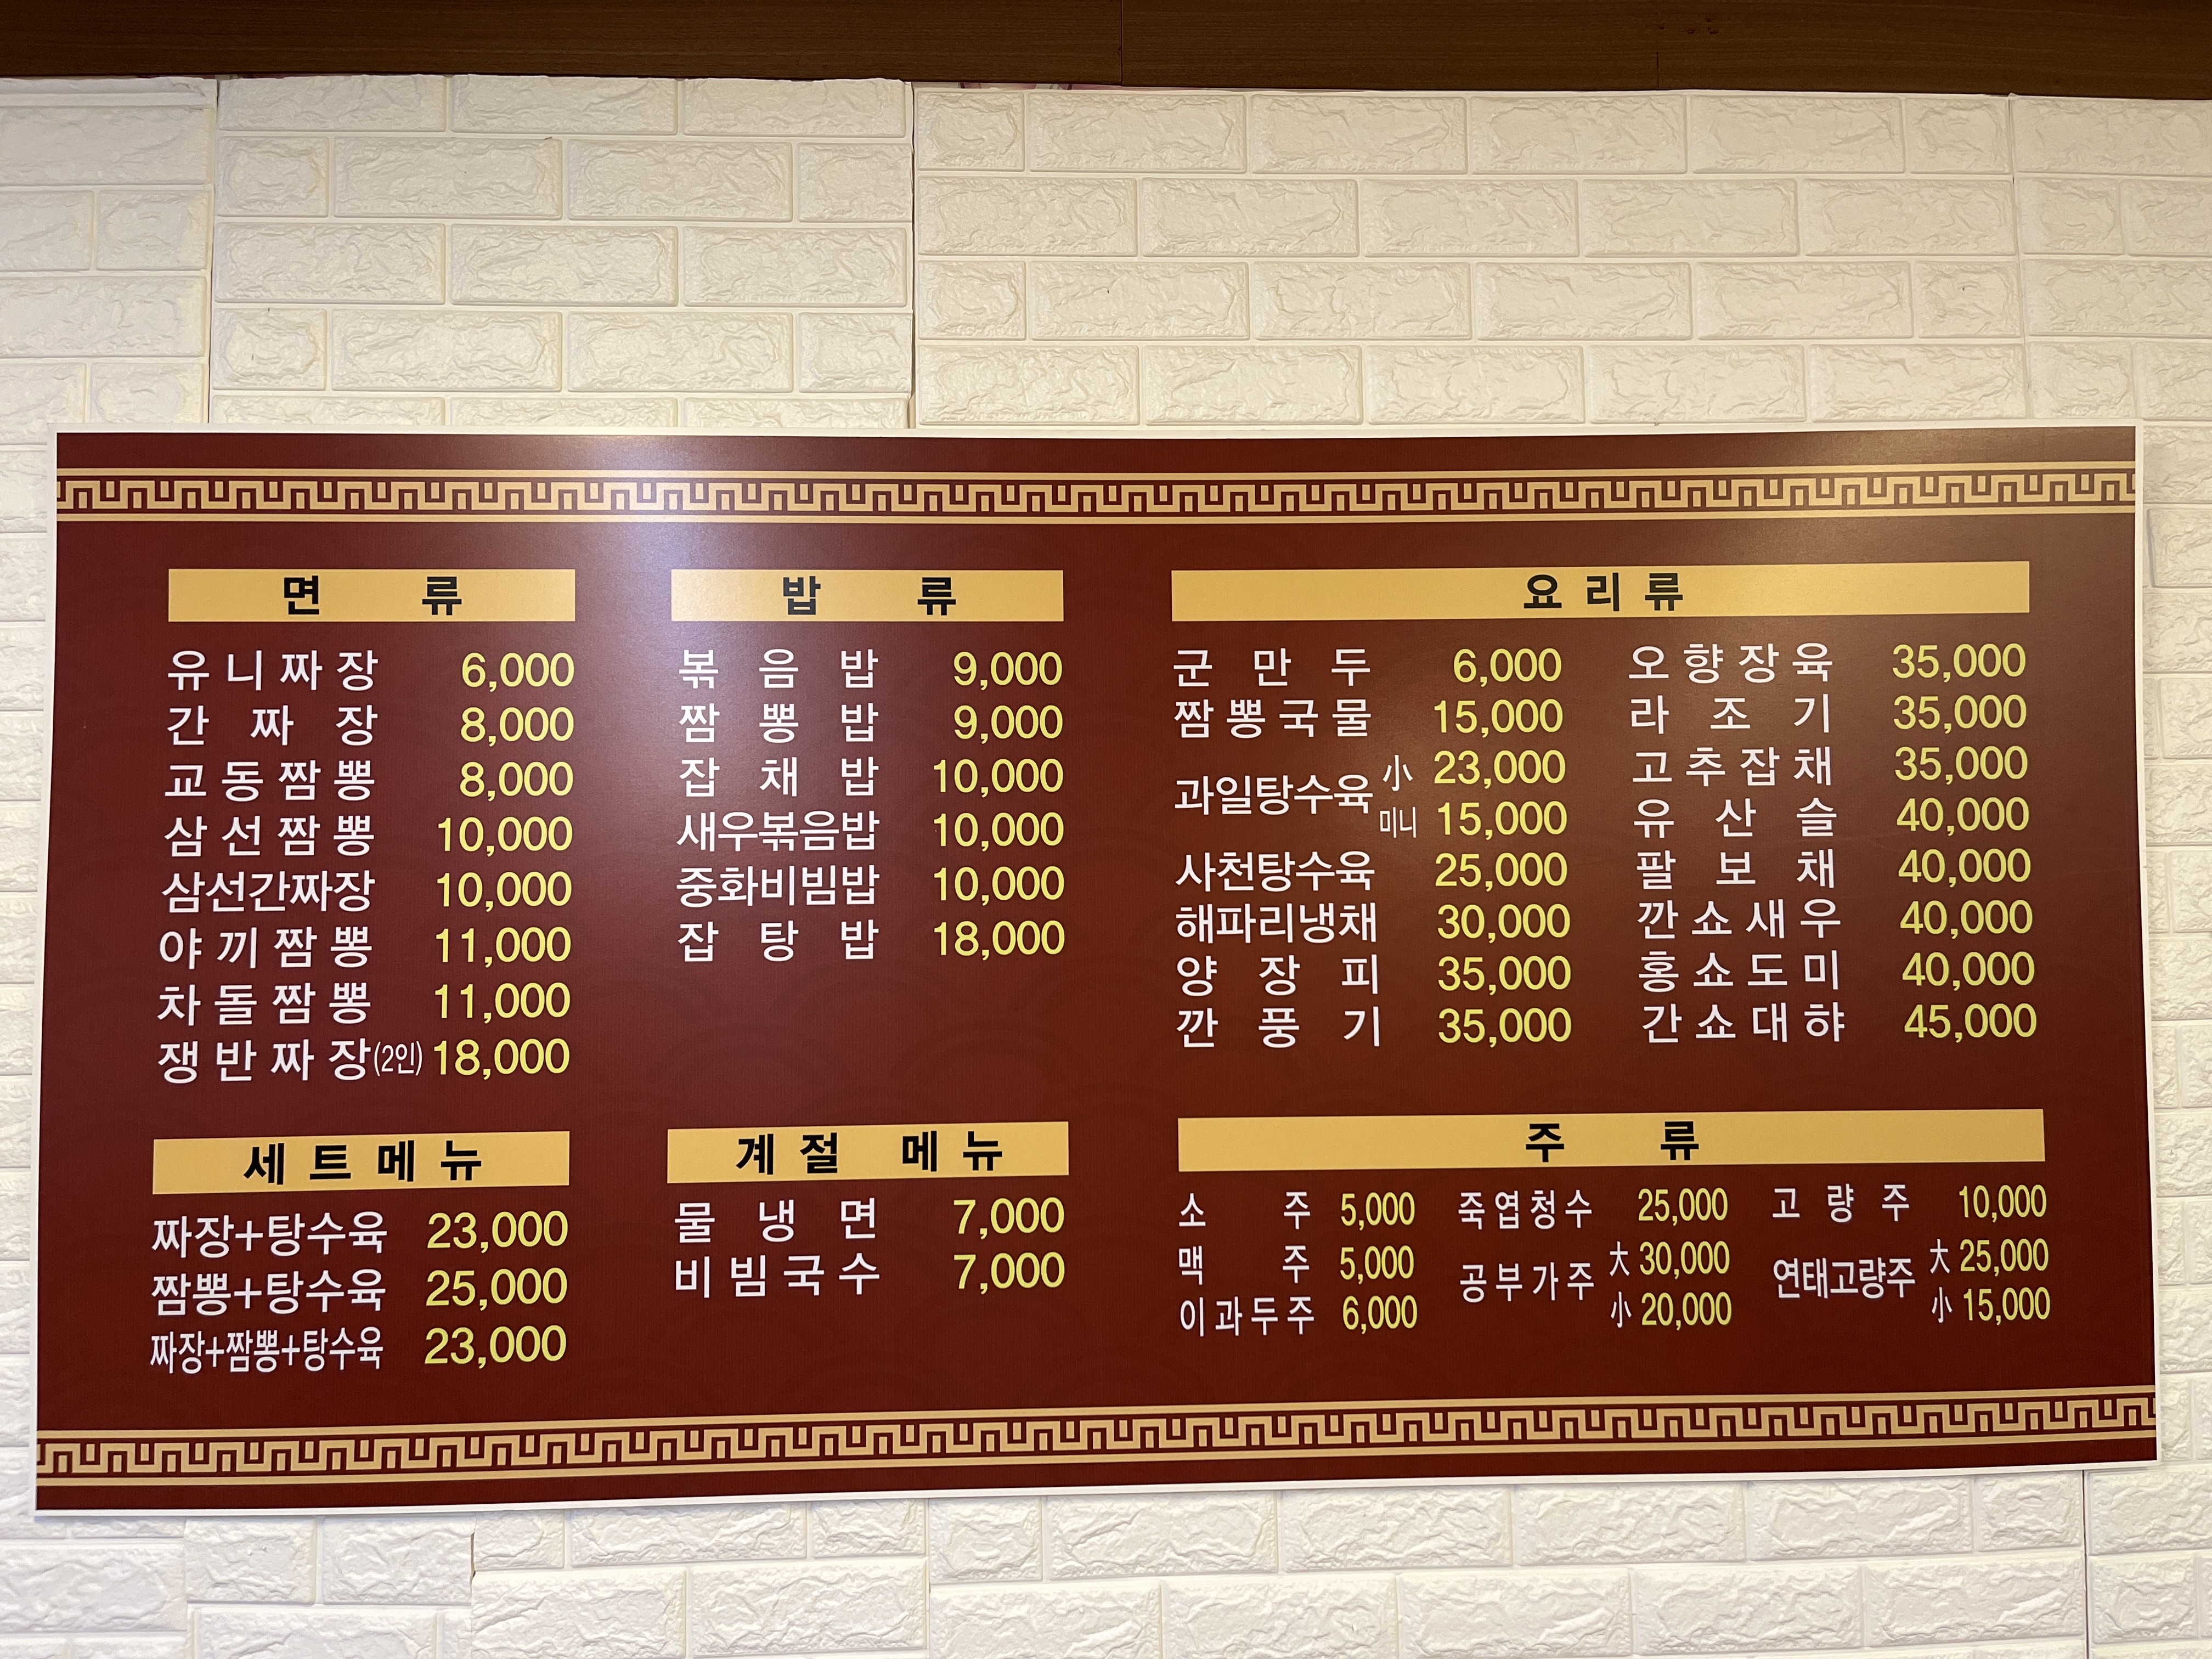 면 류
유니짜장 6,000
간짜장 8,000
교동짬뽕 8,000
삼선짬뽕 10,000
삼선간짜장 10,000
야끼짬뽕 11,000
차돌짬뽕 11,000
쟁반짜장(2인) 18,000
밥 류
볶음밥 9,000
짬뽕밥 9,000
잡채밥 10,000
새우볶음밥 10,000
중화비빔밥 10,000
잡탕밥 18,000
요리류
군만두 6,000
짬뽕국물 15,000
과일탕수육 小 23,000
미니 15,000
사천탕수육 25,000
해파리냉채 30,000
양장피 35,000
깐풍기 35,000
오향장육 35,000
라조기 35,000
고추잡채 35,000
유산슬 40,000
팔보채 40,000
깐쇼새우 40,000
홍쇼도미 40,000
간쇼대햐 45,000
세트메뉴
짜장+탕수육 23,000
짬뽕+탕수육 25,000
짜장+짬뽕+탕수육 23,000
계절 메뉴
물냉면 7,000
비빔국수 7,000
주 류
소주 5,000
맥주 5,000
이과두주 6,000
죽엽청수 25,000
공부가주 大 30,000
小 20,000
고량주 10,000
연태고량주 大 25,000
小 15,000